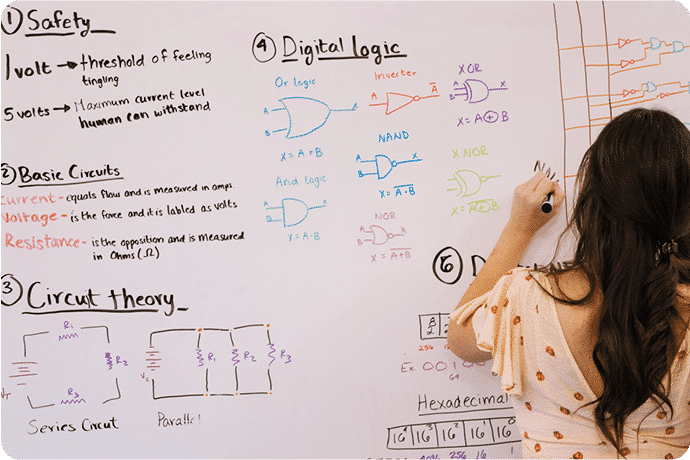 ① Safety
1 volt → threshold of feeling
tingling
5 volts → Maximum current level
human can withstand
② Basic Circuits
Current - equals flow and is measured in amps.
Voltage - is the force and it is labled as volts
Resistance - is the opposition and is measured
in Ohms (Ω)
③ Circuit theory
R1
R2
R3
VT
Series Circut
R1 R2 R3
Parallel
④ Digital logic
Or logic
A
B
X
X = A + B
And logic
A
B
X
X = A · B
Inverter
A
A̅
NAND
A
B
X
X = A̅·̅B̅
NOR
X = A̅+̅B̅
XOR
A
B
X
X = A ⊕ B
X NOR
X = A̅⊕̅B̅
⑤
256
Ex. 001
64
Hexadecimal
16⁴ 16³ 16² 16¹ 16⁰
256 16 1